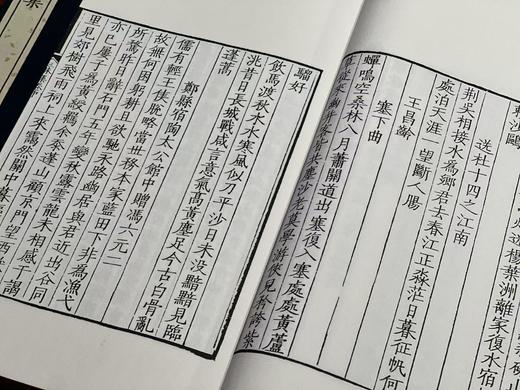 州造樓華洲離家復水宿
送杜十四之江南
荆吳相接水爲鄉君去春江正淼茫日暮征帆何
處泊天涯一望斷人腸
王昌齡
塞下曲
蟬鳴空桑林八月蕭關道出塞復入塞處處黃蘆
幽并客皆共塵沙老莫學游俠兒矜誇紫
騮好
飲馬渡秋水水寒風似刀平沙日未没黯黯見臨
洮昔日長城戰咸言意氣髙黄塵足今古白骨亂
蓬蒿
鄭縣宿陶太公館中贈馮六元二
儒有輕王侯脫略當世務本家藍田下非爲漁弋
故無何困躬耕且欲馳永路幽居與君近出谷同
所驁昨日辭石門五年變秋露雲龍未相感干謁
亦已屢子爲黄綬羈余忝蓬山顧京門望西
里見郊樹飛雨祠上來靄然關中暮